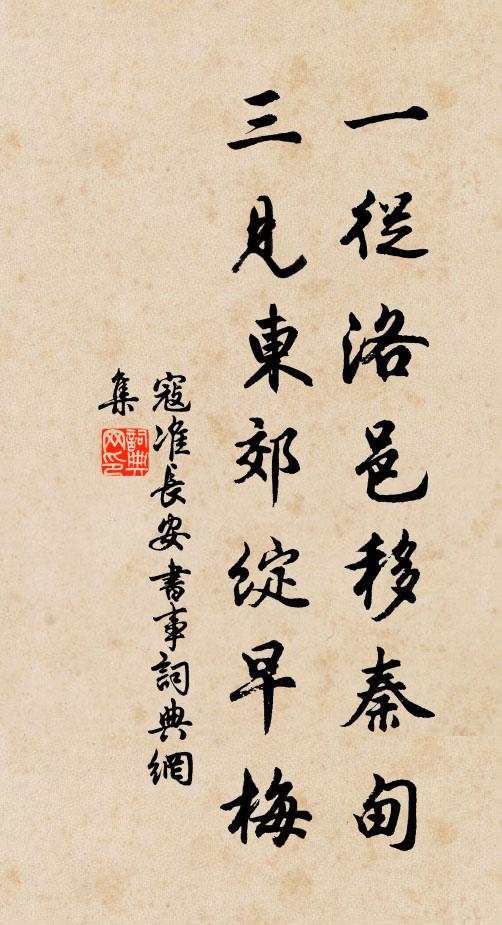 一從洛邑移秦甸
三見東郊綻早梅
寇准長安書事詞典網
集
詞典網印